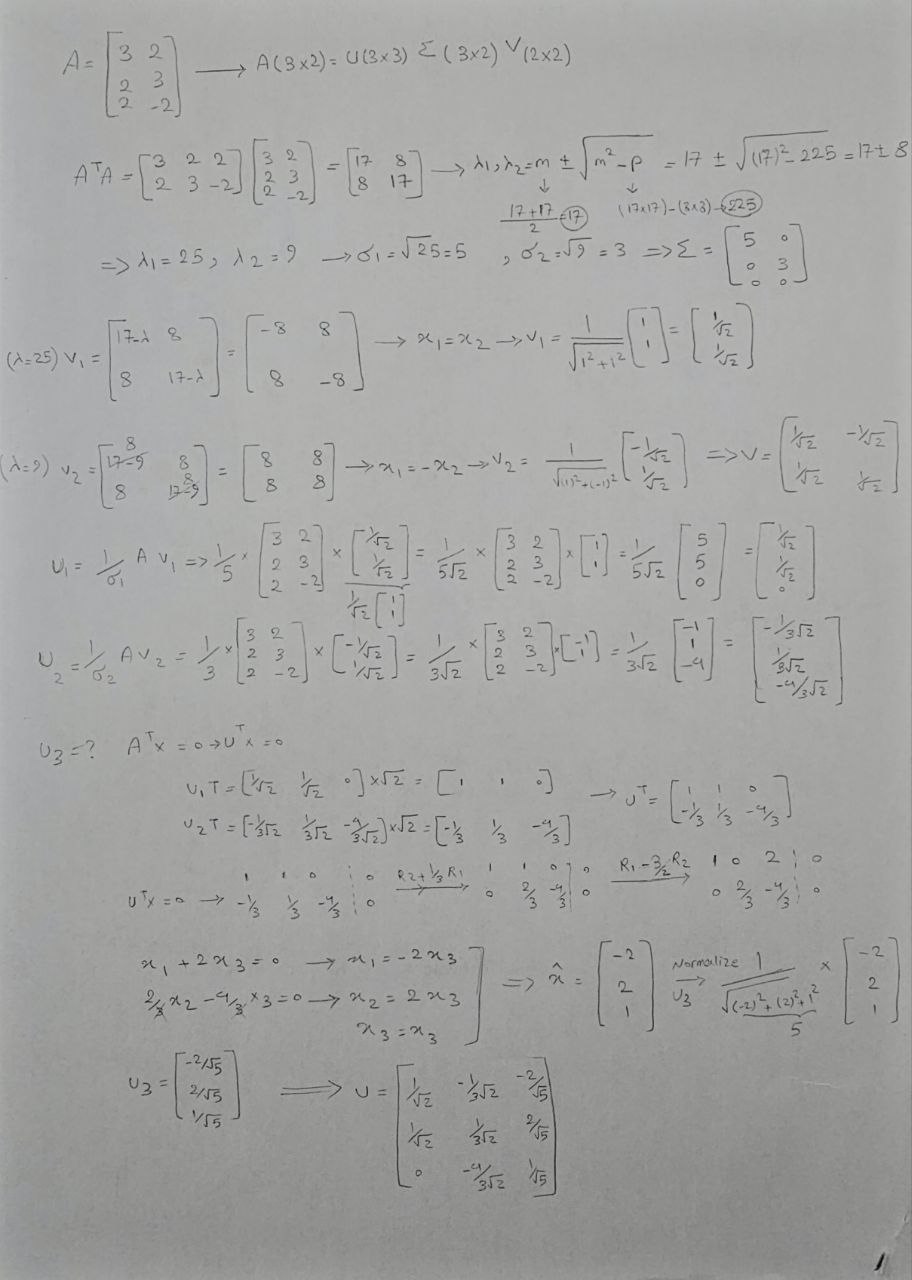 A = [3 2; 2 3; 2 -2] → A(3x2) = U(3x3) Σ(3x2) V(2x2)
AᵀA = [3 2 2; 2 3 -2] [3 2; 2 3; 2 -2] = [17 8; 8 17] → λ1, λ2 = m ± √(m² - p) = 17 ± √((17)² - 225) = 17 ± 8
↓ ↓
(17+17)/2 = 17 (17x17)-(8x8)→225
=> λ1 = 25, λ2 = 9 → σ1 = √25 = 5, σ2 = √9 = 3 => Σ = [5 0; 0 3; 0 0]
(λ=25) V1 = [17-λ 8; 8 17-λ] = [-8 8; 8 -8] → x1 = x2 → V1 = 1/√(1²+1²) [1; 1] = [1/√2; 1/√2]
(λ=9) V2 = [17-9 8 8; 8 17-9 8] = [8 8; 8 8] → x1 = -x2 → V2 = 1/√((1)²+(-1)²) [-1/√2; 1/√2] => V = [1/√2 -1/√2; 1/√2 1/√2]
U1 = 1/σ1 A V1 => 1/5 x [3 2; 2 3; 2 -2] x [1/√2; 1/√2] = 1/5√2 x [3 2; 2 3; 2 -2] x [1; 1] = 1/5√2 [5; 5; 0] = [1/√2; 1/√2; 0]
1/√2 [1; 1]
U2 = 1/σ2 A V2 = 1/3 x [3 2; 2 3; 2 -2] x [-1/√2; 1/√2] = 1/3√2 x [3 2; 2 3; 2 -2] x [-1; 1] = 1/3√2 [-1; 1; -4] = [-1/3√2; 1/3√2; -4/3√2]
U3 = ? Aᵀx = 0 → Uᵀx = 0
U1T = [1/√2 1/√2 0] x √2 = [1 1 0] → Uᵀ = [1 1 0; -1/3 1/3 -4/3]
U2T = [-1/3√2 1/3√2 -4/3√2] x √2 = [-1/3 1/3 -4/3]
Uᵀx = 0 → 1 1 0 | 0; -1/3 1/3 -4/3 | 0 R2+1/3 R1 → 1 1 0 | 0; 0 2/3 -4/3 | 0 R1-3/2 R2 → 1 0 2 | 0; 0 2/3 -4/3 | 0
x1 + 2x3 = 0 → x1 = -2x3
2/3 x2 - 4/3 x3 = 0 → x2 = 2x3
x3 = x3
=> x̂ = [-2; 2; 1] Normalize U3 → 1/√((-2)²+(2)²+1²) x [-2; 2; 1]
5
U3 = [-2/√5; 2/√5; 1/√5] => U = [1/√2 -1/3√2 -2/√5; 1/√2 1/3√2 2/√5; 0 -4/3√2 1/√5]